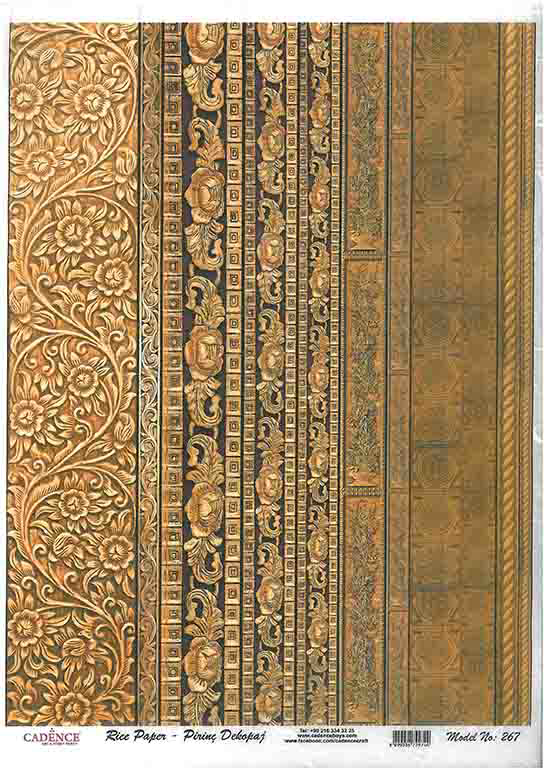 CADENCE
Rice Paper - Pirinç Dekopaj
Tel: +90 216 334 33 25
www.cadenceboya.com
www.facebook.com/cadencecraft
Model No: 267